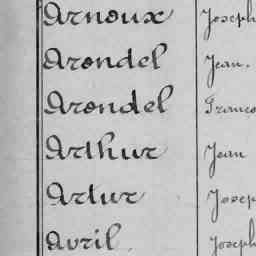 Arnoux Joseph
Arondel Jean.
Arondel Franço
Arthur Jean
Artur Joseph
Avril Joseph